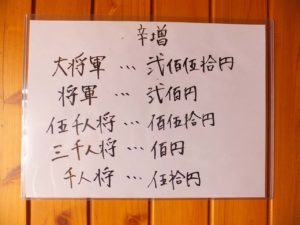 辛増
大将軍…弐佰伍拾円
将軍…弐佰円
伍千人将…佰伍拾円
三千人将…佰円
千人将…伍拾円